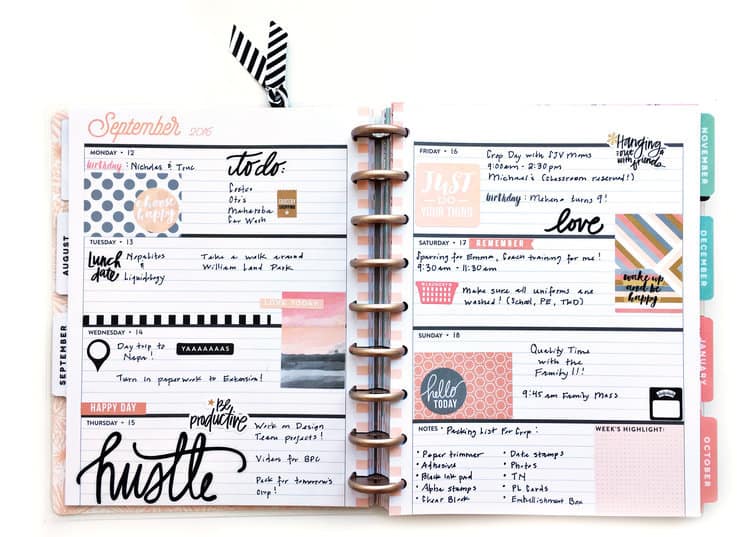 September 2016
MONDAY • 12
birthday: Nicholas & Truc
to do:
Costco
Oto's
Maharaba
Car Wash
GROCERY SHOPPING
choose happy
TUESDAY • 13
Lunch date
Nopalitos
&
Liquidology
Take a walk around
William Land Park.
LOVE TODAY
WEDNESDAY • 14
Day trip to
Napa!
YAAAAAAS
Turn in paperwork to Extension!
HAPPY DAY
be productive
THURSDAY • 15
hustle
Work on Design
Team projects!
Videos for BPC
Pack for tomorrow's
Crop!
FRIDAY • 16
Crop Day with SJV Moms
9:00am - 2:30pm
Michael's (classroom reserved!)
Hanging
out
with friends
JUST
be
YOUR THING
birthday: Makena turns 9!
love
SATURDAY • 17
REMEMBER
Sparring for Emma, Coach training for me!
9:30am - 11:30am
Make sure all uniforms are
washed! (School, PE, TKD)
wake up
and be
happy
SUNDAY • 18
Quality Time
with the
Family!!!
hello
TODAY
9:45am Family Mass
NOTES • Packing List for Crop:
WEEK'S HIGHLIGHT:
• Paper trimmer
• Adhesive
• Black ink pad
• Alpha stamps
• Clear Block
• Date stamps
• Photos
• TN
• PL Cards
• Embellishment Box
AUGUST
SEPTEMBER
NOVEMBER
DECEMBER
JANUARY
OCTOBER